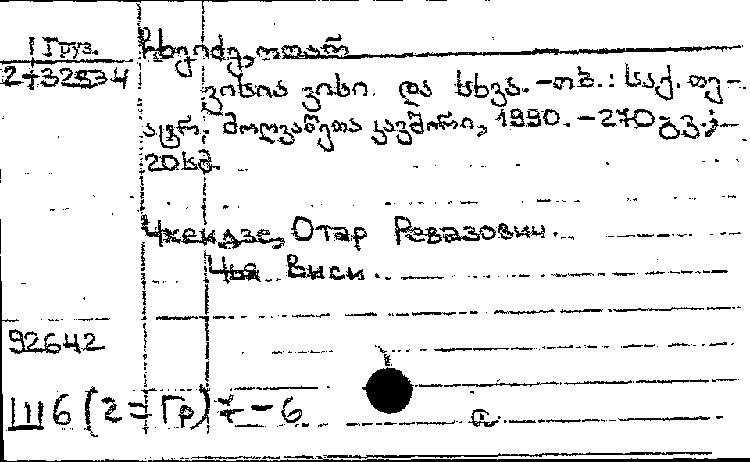 Груз.
2-32534
ჩხეიძე, ოთარ
ვისია ვისი და სხვა. -თბ.: საქ. თე-
ატრ. მოღვაწეთა კავშირი, 1990. - 270გვ.;
20სმ.
Чхеидзе, Отар Ревазович.
Чья Виси.
92642
Ш6(2=Гр)7-6
а